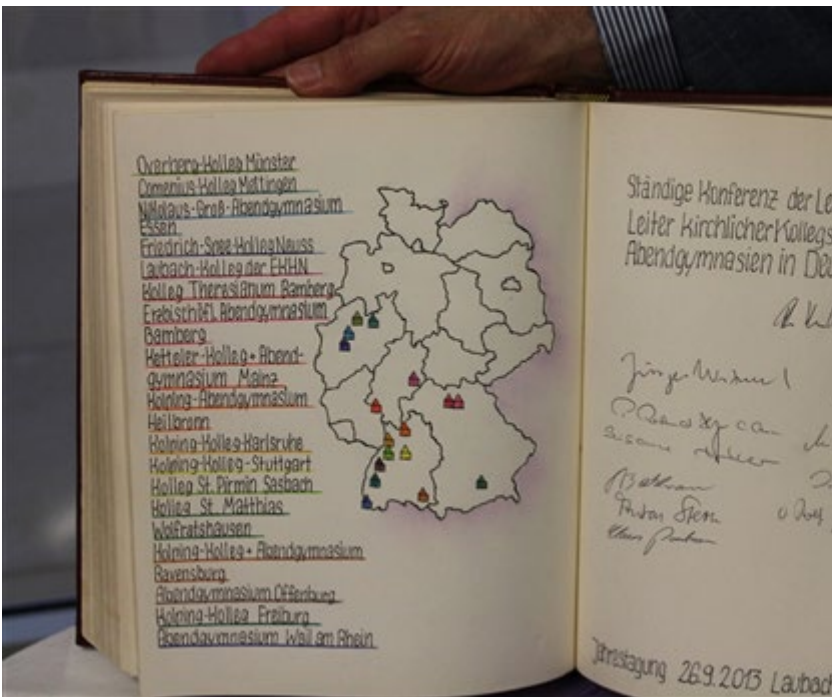 Overberg-Kolleg Münster
Comenius-Kolleg Mettingen
Nikolaus-Groß-Abendgymnasium
Essen
Friedrich-Spee-Kolleg Neuss
Laubach-Kolleg der EKHN
Kolleg Theresianum Bamberg
Erzbischöfl. Abendgymnasium
Bamberg
Ketteler-Kolleg + Abend-
gymnasium Mainz
Kolping-Abendgymnasium
Heilbronn
Kolping-Kolleg-Karlsruhe
Kolping-Kolleg-Stuttgart
Kolleg St. Pirmin Sasbach
Kolleg St. Matthias
Wolfratshausen
Kolping-Kolleg + Abendgymnasium
Ravensburg
Abendgymnasium Offenburg
Kolping-Kolleg Freiburg
Abendgymnasium Weil am Rhein
Ständige Konferenz der Le
Leiter kirchlicher Kollegs
Abendgymnasien in Deu
Jahrestagung 26.9.2013 Laubach